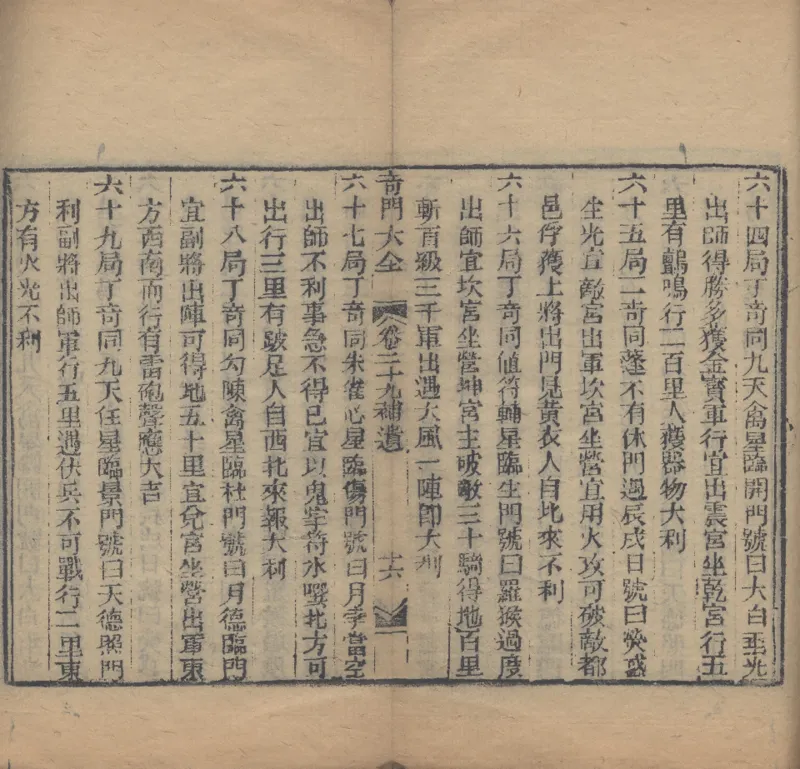 六十四局丁奇同九天禽星臨開門號曰大白丕光
出師得勝多獲金寶軍行宜出震宮坐乾宮行五
里有鸛鳴行二百里人獲器物大利
六十五局二奇同蓬不有休門過辰戌日號曰熒惑
坐光宜敵宮出軍坎宮坐營宜用火攻可破敵都
邑俘獲上將出門見黃衣人自北來不利
六十六局丁奇同値符輔星臨生門號曰羅猴過度
出師宜坎宮坐營坤宮主破敵三十騎得地百里
斬百級三千軍出遇大風一陣卽大利
奇門大全 卷二十九補遺 十六
六十七局丁奇同朱雀心星臨傷門號曰月孛當空
出師不利事急不得已宜以鬼字符水噀北方可
出行三里有跛足人自西北來報大利
六十八局丁奇同勾陳禽星臨杜門號曰月德臨門
宜副將出陣可得地五十里宜兌宮坐營出軍東
方西南而行有雷砲聲應大吉
六十九局丁奇同九天任星臨景門號曰天德照門
利副將出師軍行五里遇伏兵不可戰行二里東
方有火光不利